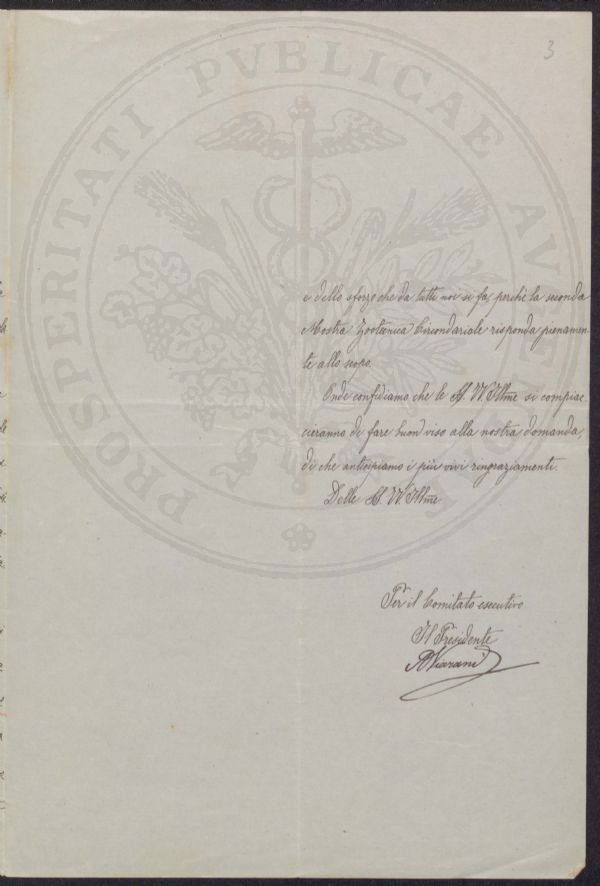 3
PROSPERITATI PVBLICAE AV
e dello sforzo che da tutti noi si fa, perchè la seconda
Mostra Zootecnica Circondariale risponda pienamen-
te allo scopo.
Onde confidiamo che le SS. VV. Illme si compiac-
cieranno di fare buon viso alla nostra domanda,
di che anticipiamo i più vivi ringraziamenti.
Delle SS. VV. Illme.
Per il Comitato esecutivo
Il Presidente